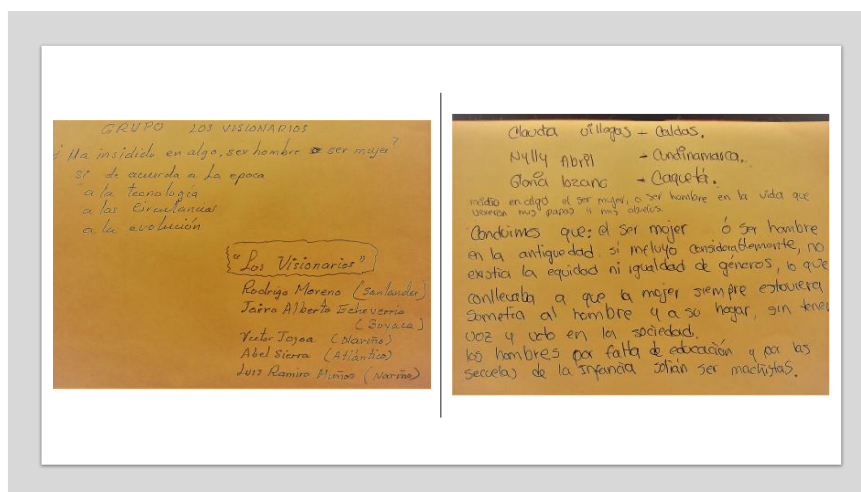 GRUPO LOS VISIONARIOS
¿ Ha insidido en algo, ser hombre o ser mujer?
Si de acuerdo a la epoca
a la tecnología
a las circustancias
a la evolución
"Los Visionarios"
Rodrigo Moreno (Santander)
Jairo Alberto Echeverria
(Boyaca)
Victor Jojoa (Nariño)
Abel Sierra (Atlántico)
Luis Ramiro Muñoz (Nariño)
Claudia Villegas - Caldas.
Nylly Abril - Cundinamarca.
Gloria lozano - Caquetá.
incidio en algo el ser mujer, o ser hombre en la vida que
vivieron mis papas y mis abuelos.
Concluimos que: el ser mujer ó ser hombre
en la antiguedad si incluyo considerablemente, no
existia la equidad ni igualdad de géneros, lo que
conllevaba a que la mujer siempre estuviera
sometia al hombre y a su hogar, sin tener
voz y voto en la sociedad.
los hombres por falta de educación y por las
secuelas de la infancia solián ser machistas.